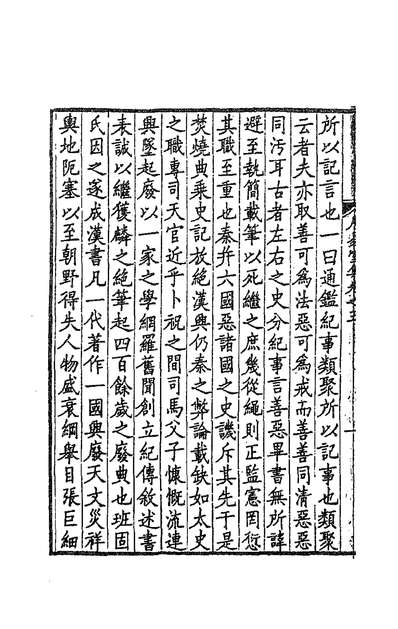 所以記言也一曰通鑑紀事類聚所以記事也類聚
云者夫亦取善可為法惡可為戒而善善同清惡惡
同污耳古者左右之史分紀事言善惡畢書無所諱
避至執簡載筆以死繼之庶幾從繩則正監憲罔愆
其職至重也秦并六國惡諸國之史譏斥其先于是
焚燒典乘史記放絕漢興仍秦之弊論載缺如太史
之職專司天官近乎卜祝之間司馬父子慷慨流連
興墜起廢以一家之學網羅舊聞創立紀傳敘述書
表誠以繼獲麟之絕筆起四百餘歲之廢典也班固
氏因之遂成漢書凡一代著作一國興廢天文災祥
輿地阨塞以至朝野得失人物盛衰綱舉目張巨細